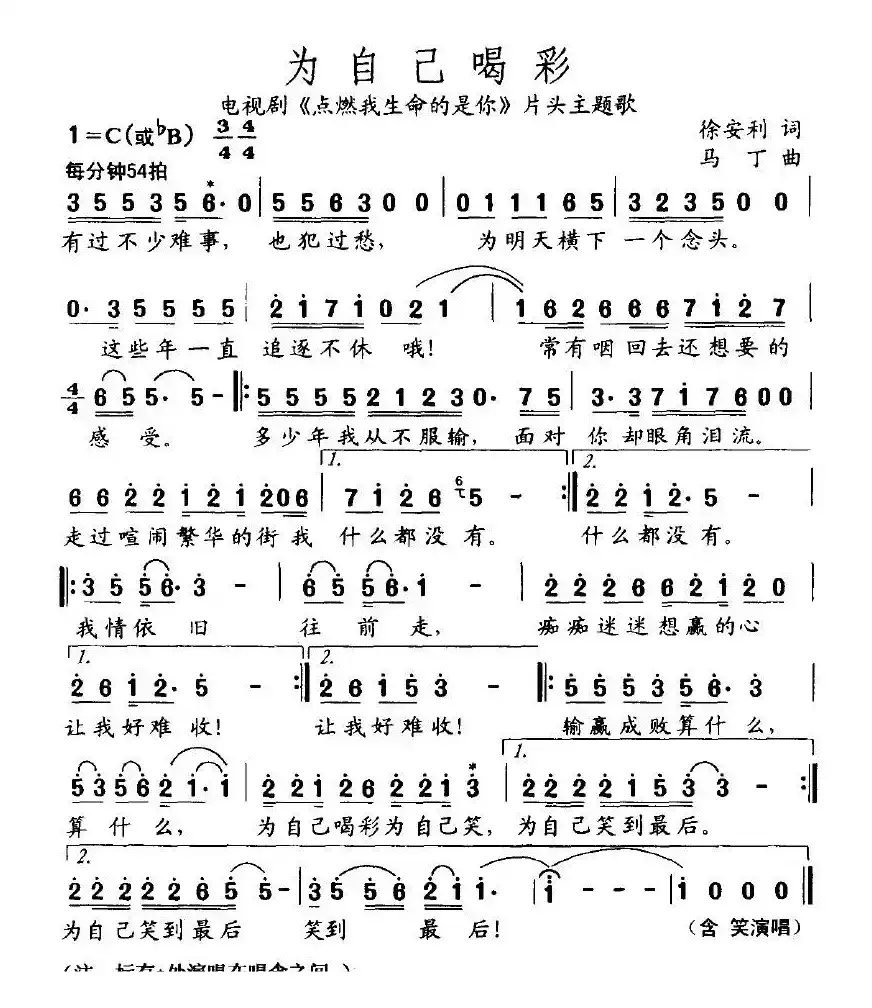 为自己喝彩
电视剧《点燃我生命的是你》片头主题歌
1=C(或♭B) 3/4 4/4
徐安利 词
每分钟54拍
马丁 曲
3 5 5 3 5 6· 0 | 5 5 6 3 0 0 | 0 1 1 1 6 5 | 3 2 3 5 0 0 |
有过不少难事, 也犯过愁, 为明天横下 一个念头。
0· 3 5 5 5 5 | 2 1 7 1 0 2 1 | 1 6 2 6 6 6 7 1 2 7 |
这些年一直 追逐不休 哦! 常有咽回去还想要的
4/4 6 5 5· 5 - |: 5 5 5 5 2 1 2 3 0· 7 5 | 3· 3 7 1 7 6 0 0 |
感 受。 多少年我从不服输, 面对 你却眼角泪流。
1. 2.
6 6 2 2 1 2 1 2 0 6 | 7 1 2 6 6 5 - :| 2 2 1 2· 5 - |
走过喧闹繁华的街我 什么都没有。 什么都没有。
|: 3 5 5 6· 3 - | 6 5 5 6· 1 - | 2 2 2 6 6 2 1 2 0 |
我情依 旧 往 前 走, 痴痴迷迷想赢的心
1. 2.
2 6 1 2· 5 - :| 2 6 1 5 3 - :| 5 5 5 3 5 6· 3 |
让我好难收! 让我好难收! 输赢成败算什么,
1.
5 3 5 6 2 1· 1 | 2 2 1 2 6 2 2 1 3 | 2 2 2 2 1 5 3 3 - :|
算 什 么, 为自己喝彩为自己笑, 为自己笑到最后。
2.
2 2 2 2 2 6 5 5 - | 3 5 5 6 2 1 1· | 1 - - - | 1 0 0 0 ‖
为自己笑到最后 笑到 最 后! (含 笑演唱)